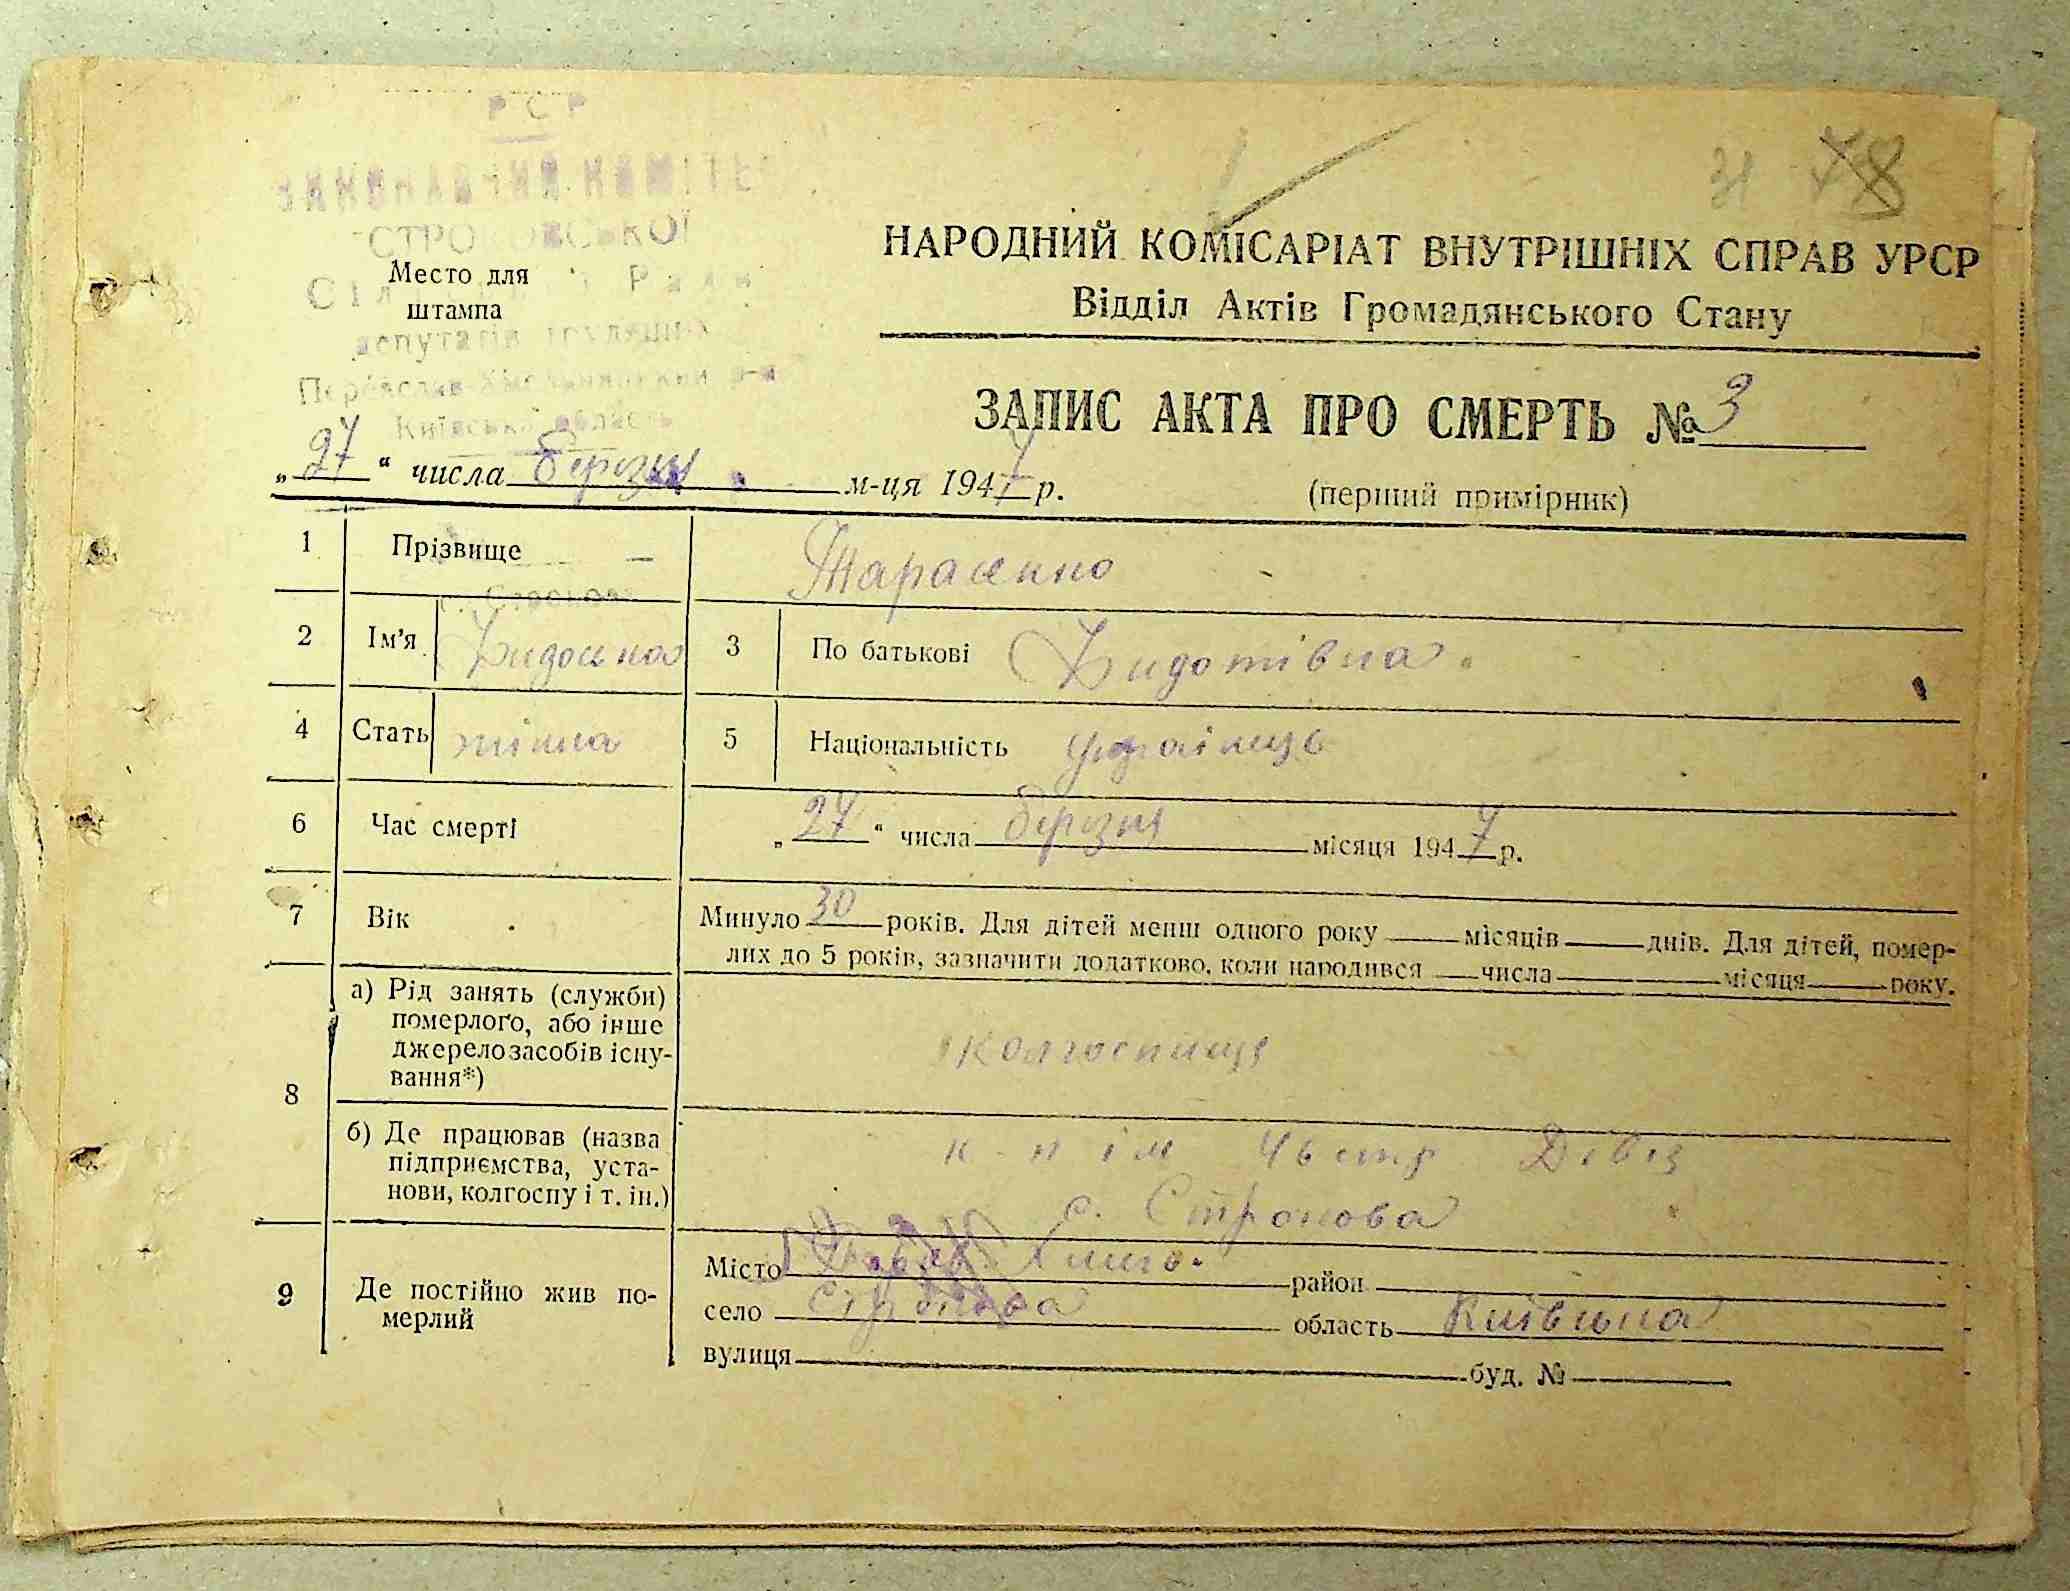 РСР
ВИКОНАВЧИЙ КОМІТЕ
СТРОКОВСЬКОЇ
Сіл Ради
депутатів трудящих
Переяслав-Хмельницький р-н
Київська область
с. Строкова
Место для
штампа
31 78
НАРОДНИЙ КОМІСАРІАТ ВНУТРІШНІХ СПРАВ УРСР
Відділ Актів Громадянського Стану
ЗАПИС АКТА ПРО СМЕРТЬ № 3
„27“ числа березня м-ця 1947 р.
(перший примірник)
1 Прізвище Тарасенко
2 Ім'я 3 По батькові
4 Стать жіноча 5 Національність українць
6 Час смерті „27“ числа березня місяця 1947 р.
7 Вік Минуло 30 років. Для дітей менш одного року місяців днів. Для дітей, помер-
лих до 5 років, зазначити додатково, коли народився числа місяця року.
8 а) Рід занять (служби)
померлого, або інше
джерело засобів існу-
вання*)
колгоспниця
б) Де працював (назва
підприємства, уста-
нови, колгоспу і т. ін.)
к-п ім Чь стр Дівіз
с. Строкова
9 Де постійно жив по-
мерлий
Місто район
село Строкова область Київська
вулиця буд. №